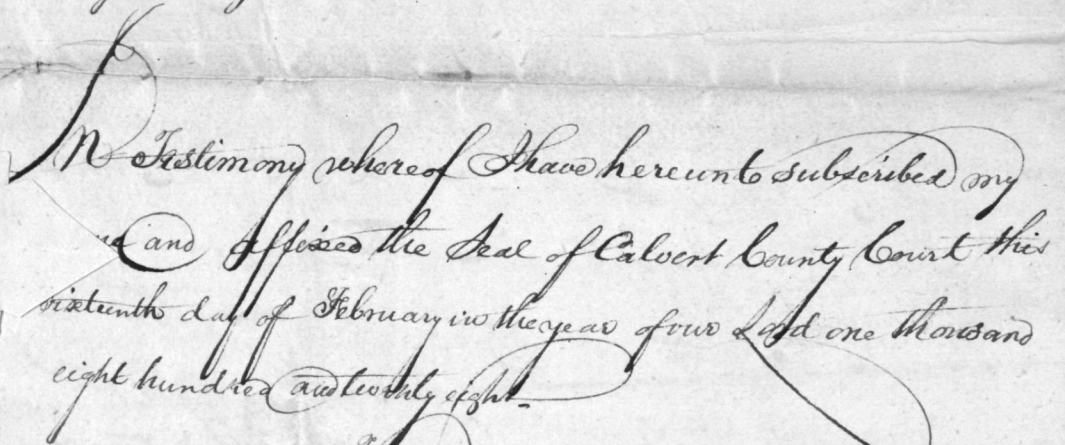 In Testimony whereof I have hereunto subscribed my
and affixed the Seal of Calvert County Court this
sixteenth day of February in the year of our Lord one thousand
eight hundred and twenty eight-